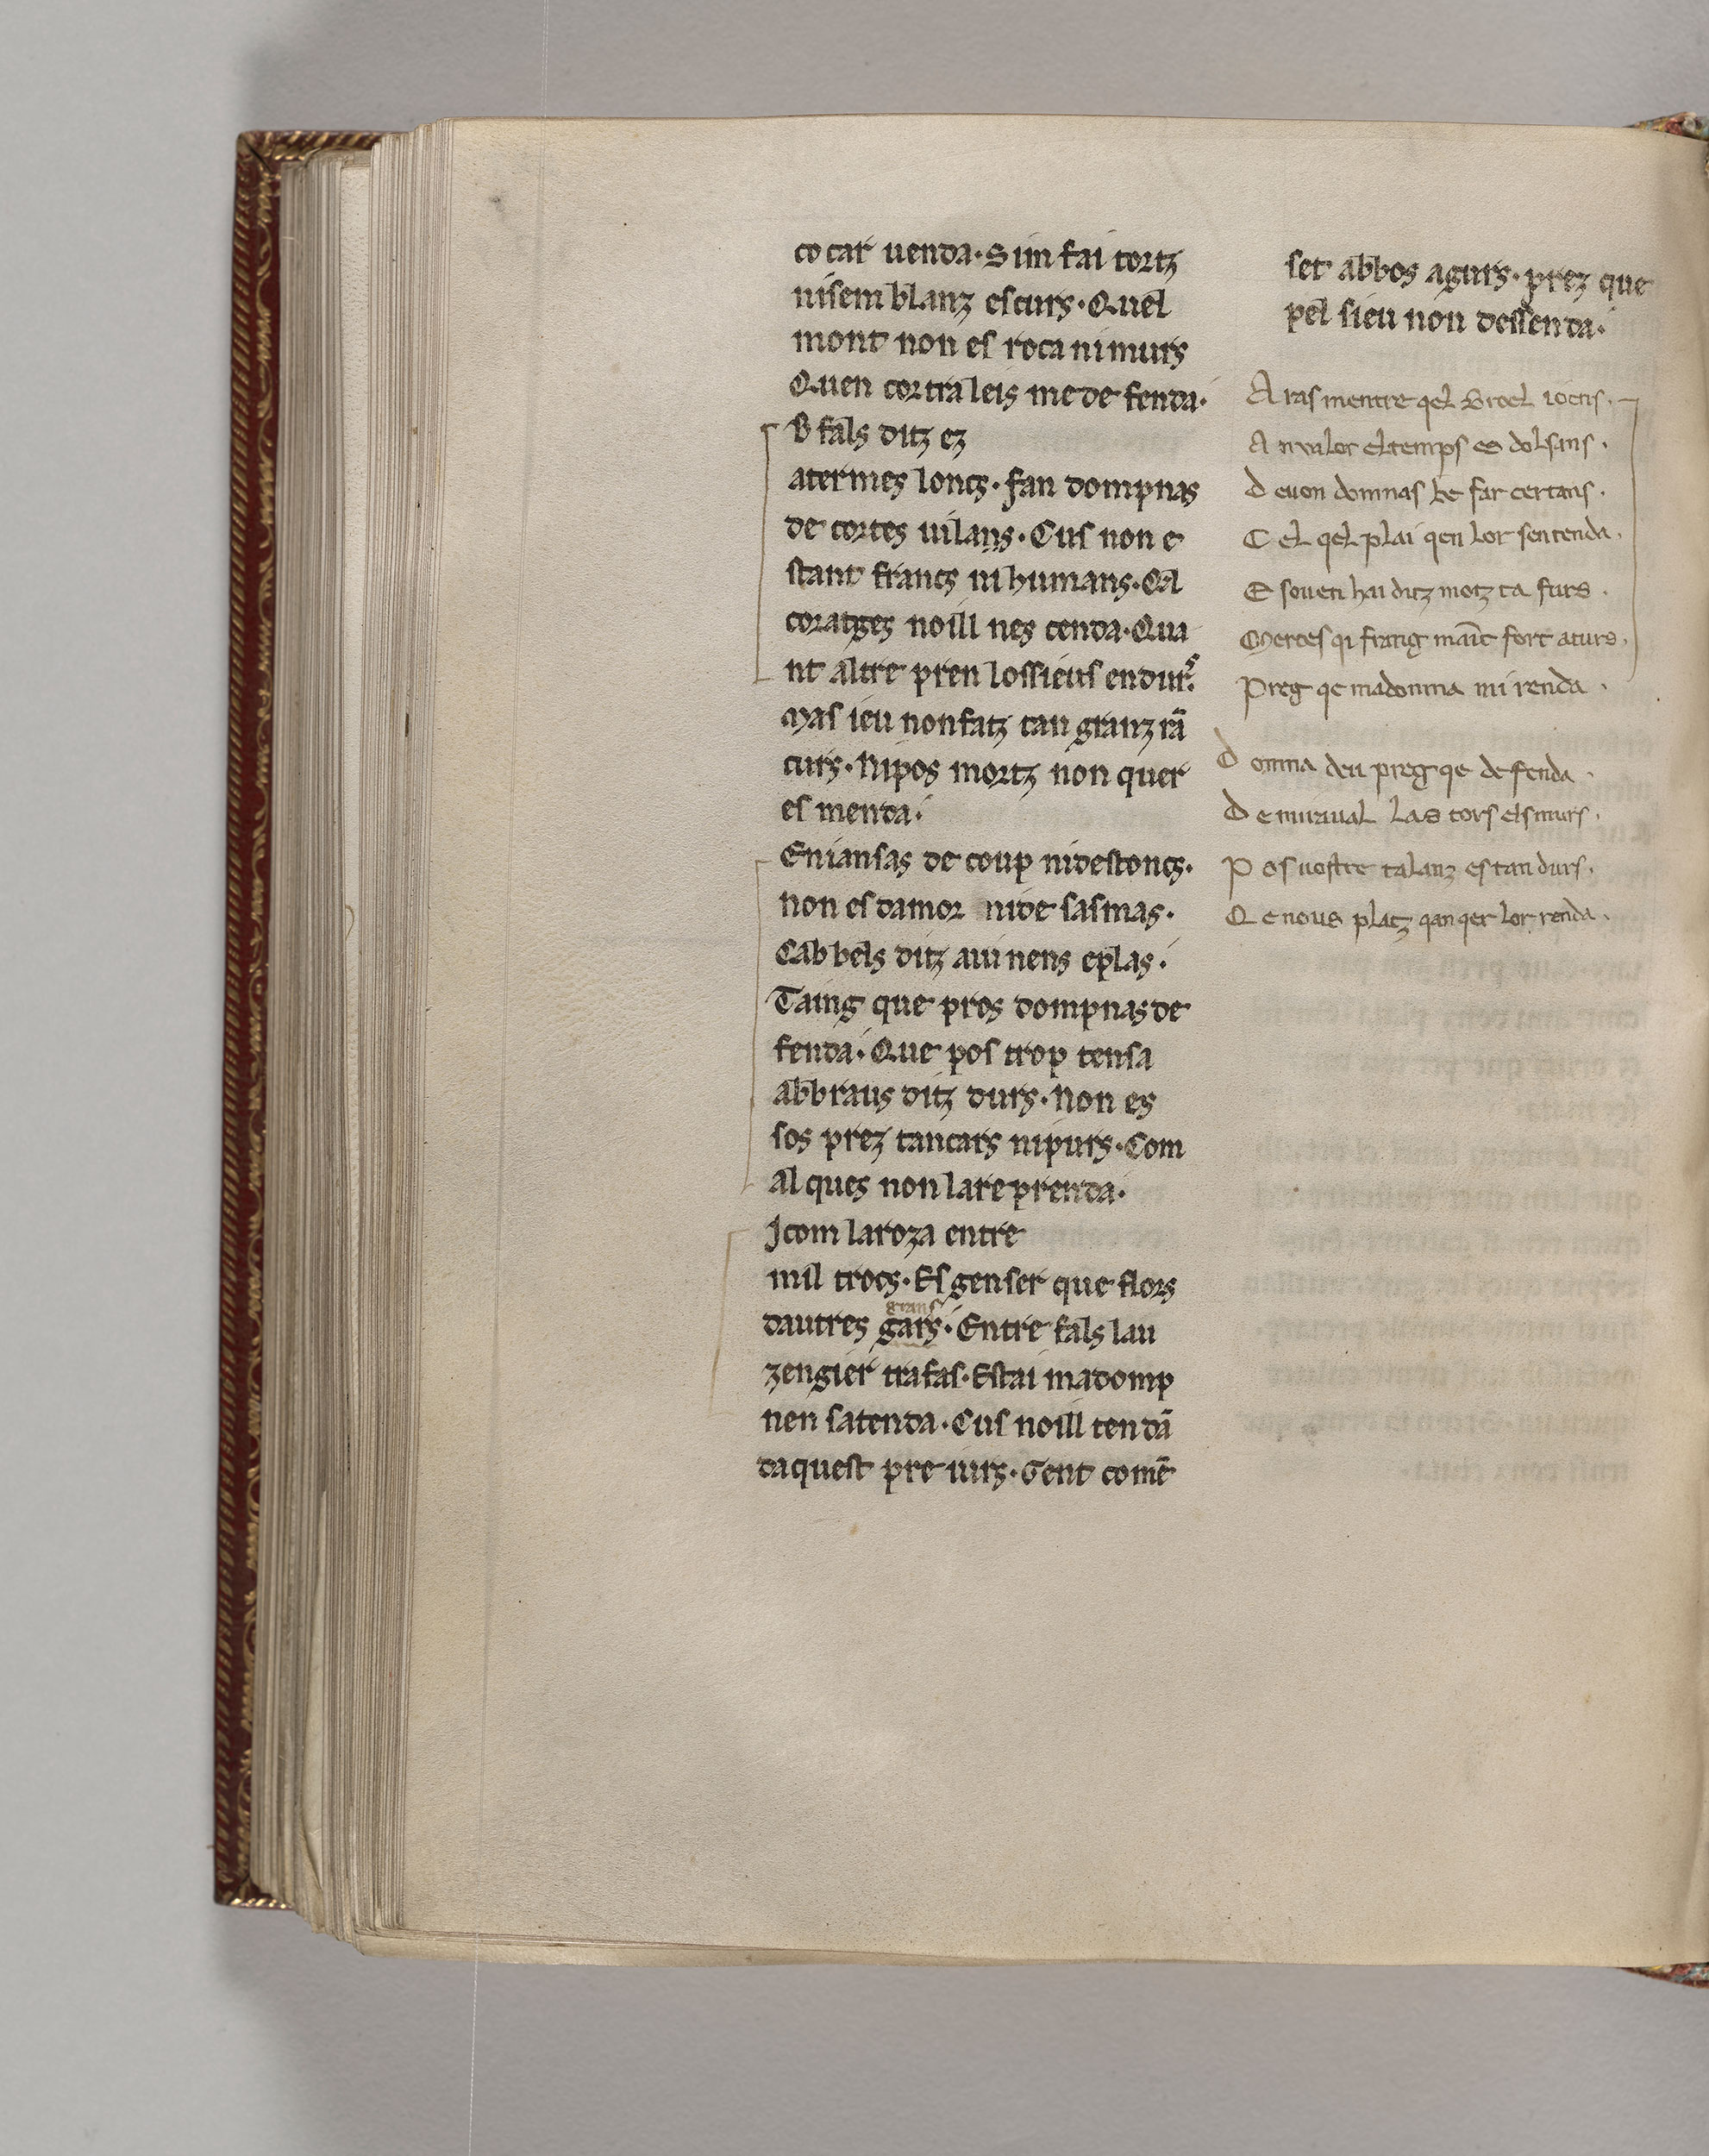 co car uenda·Sim fai tortz
nisemblanz escurs·Quel
mont non es roca nimurs
Quen cortra leis mede fenda·
B fals ditz ez
atermes loncs·fan dompnas
de cortes uilans·Cus non e
stant francs ni humans·Cal
coratges noill nes tenda·Qua
nt altre pren lossieus endurs.
Mas ieu nonfatz tan granz rã
curs·Nipos mortz non quer
esmenda·
Eniansas de coup nidestoncs·
non es damor nide sasmas·
Cab bels ditz auinens eplas·
Taing que pros dompnas de
fenda·Que pos trop tensa
abbraus ditz durs·Non es
sos prez tancars nipurs·Com
alques non lare prenda·
Jcom laroza entre
mil trocs·Es genser que flors
grans
dautres gars·Entre fals lau
zengier trafas·Estai madomp
nen satenda·Cus noill tendã
daquest pre iurs·Gent comẽ
set abbos agurs·prez que
pel sieu non dessenda·
Aras mentre qel Broel iocns·
A nualor eltemps es dolsans·
Deuon domnas be far certans·
Cel qel plai qen lor sentenda·
E souen hai ditz motz ta furs·
Merces qi frang maĩt fort aturs·
Preg qe madomna mi renda·
Domna deu preg qe defenda·
De miraual las tors elsmurs·
Pos uostre talanz es tan durs·
Qe nous platz qan qer lor renda·